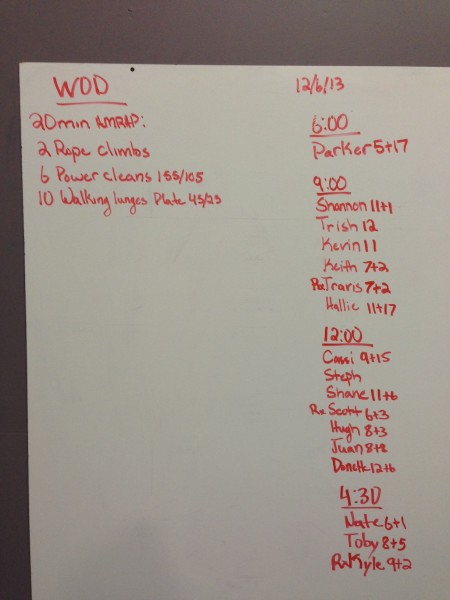 WOD
20min AMRAP:
2 Rope climbs
6 Power cleans 155/105
10 Walking lunges Plate 45/25
12/6/13
6:00
Parker 5+17
9:00
Shannon 11+1
Trish 12
Kevin 11
Keith 7+2
Rx Travis 7+2
Hallie 11+17
12:00
Cassi 9+15
Steph
Shane 11+6
Rx Scott 6+3
Hugh 8+3
Juan 8+8
12+6
4:30
Nate 6+1
Toby 8+5
Rx Kyle 9+2